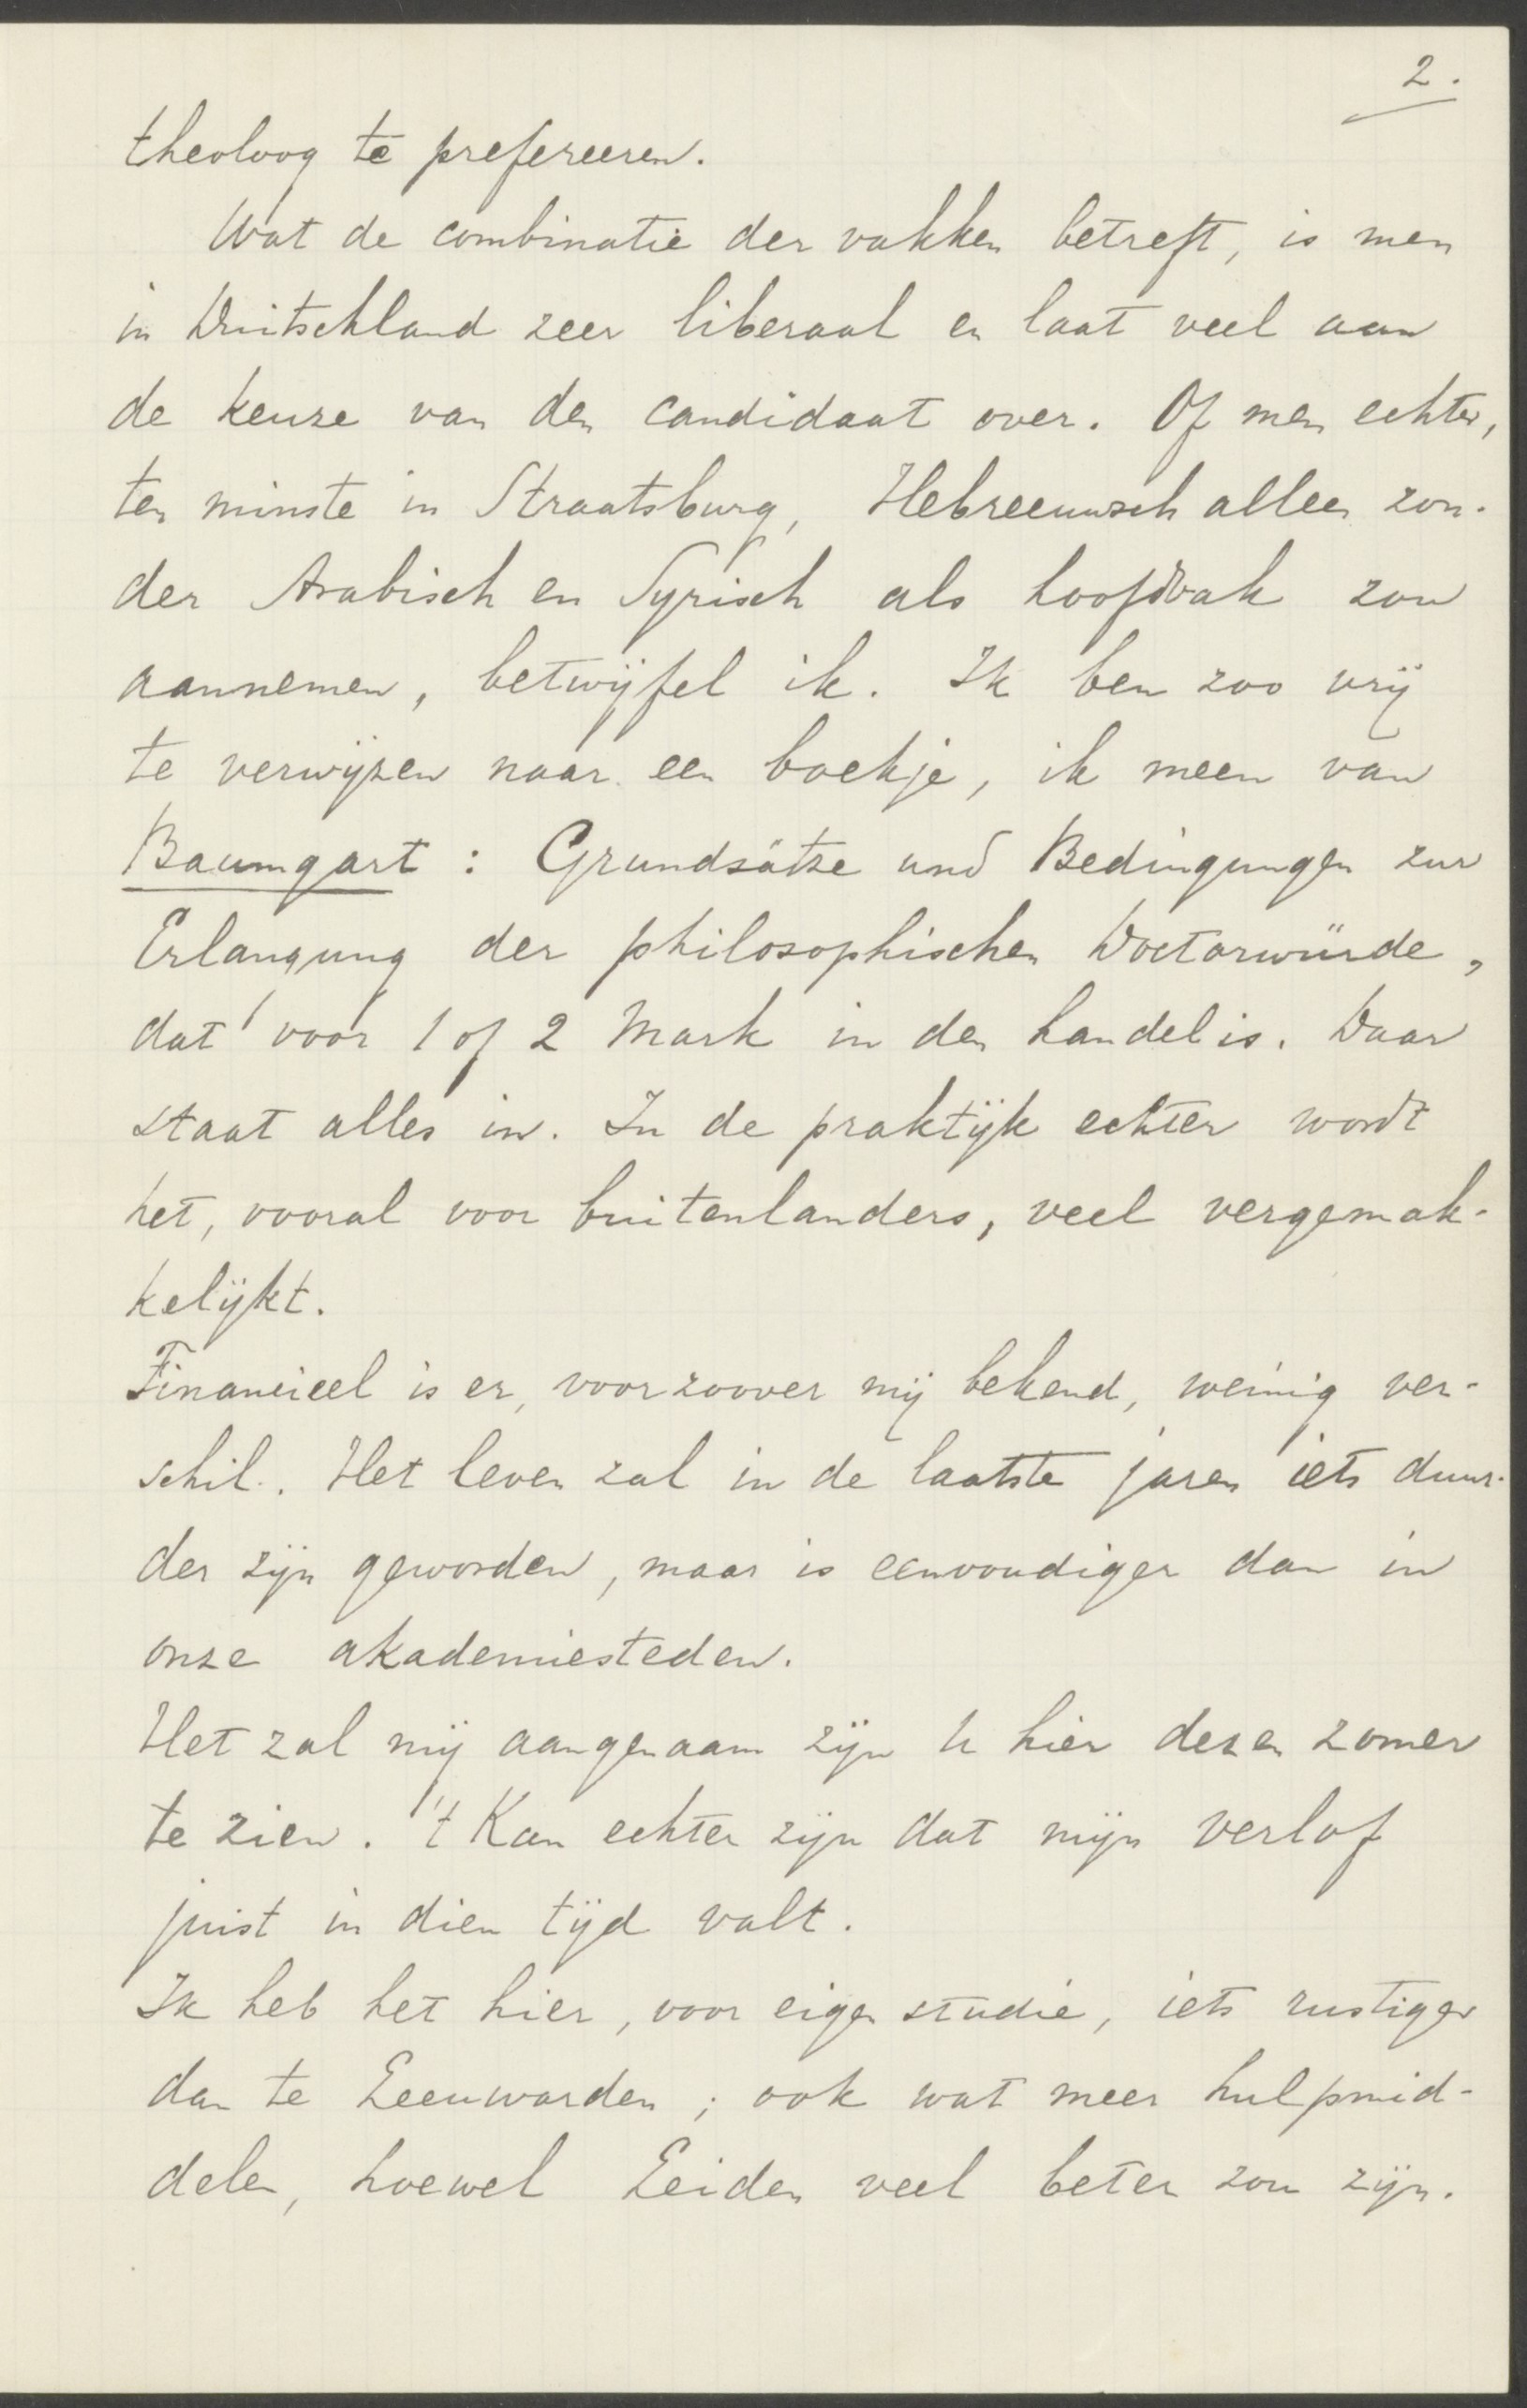 2.
theoloog te prefereeren.
Wat de combinatie der vakken betreft, is men
in Duitschland zeer liberaal en laat veel aan
de keuze van den candidaat over. Of men echter,
ten minste in Straatsburg, Hebreeuwsch alleen zon-
der Arabisch en Syrisch als hoofdvak zou
aannemen, betwijfel ik. Ik ben zoo vrij
te verwijzen naar een boekje, ik meen van
Baumgart : Grundsätze und Bedingungen zur
Erlangung der philosophischen Doctorwürde,
dat voor 1 of 2 Mark in den handel is. Daar
staat alles in. In de praktijk echter wordt
het, vooral voor buitenlanders, veel vergemak-
kelijkt.
Financieel is er, voorzoover mij bekend, weinig ver-
schil. Het leven zal in de laatste jaren iets duur-
der zijn geworden, maar is eenvoudiger dan in
onze akademiesteden.
Het zal mij aangenaam zijn U hier dezen zomer
te zien. 't Kan echter zijn dat mijn verlof
juist in dien tijd valt.
Ik heb het hier, voor eigen studie, iets rustiger
dan te Leeuwarden ; ook wat meer hulpmid-
delen, hoewel Leiden veel beter zou zijn.